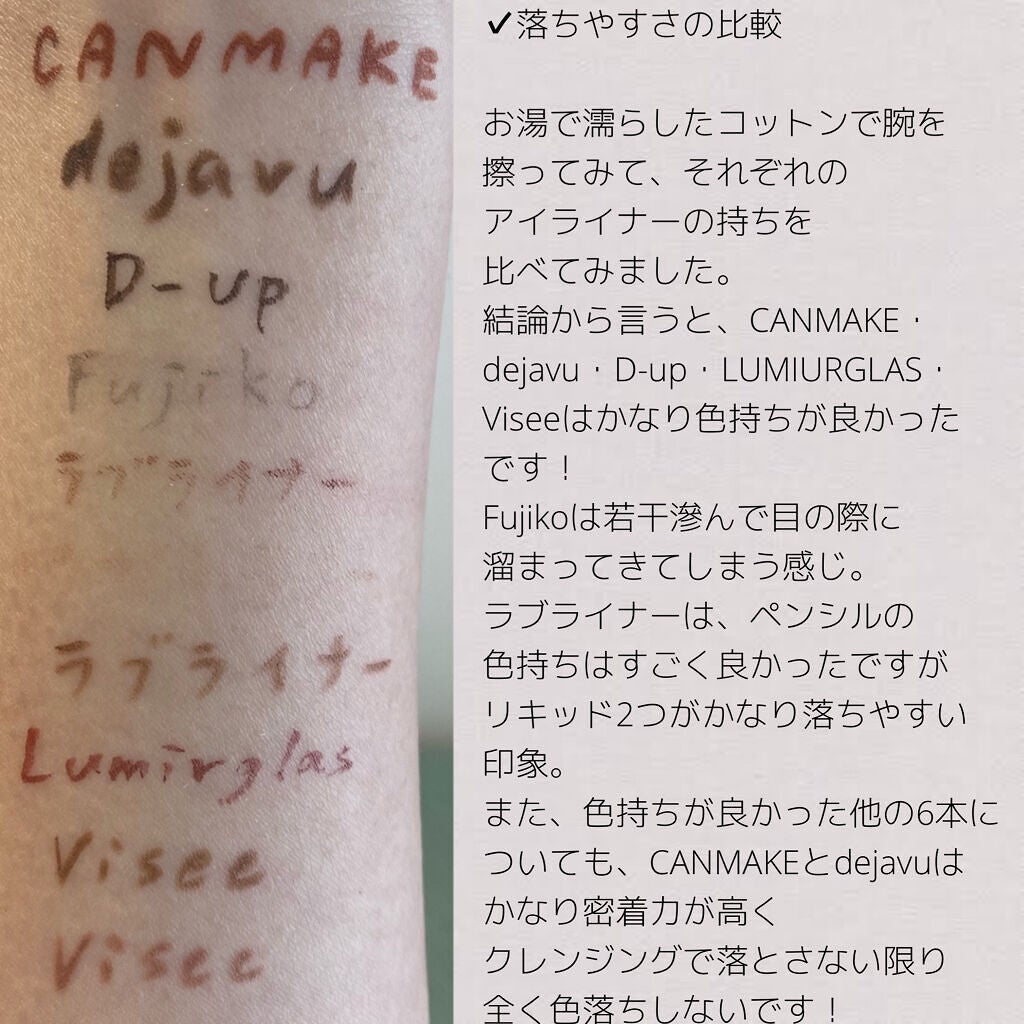 CANMAKE
dejavu
D-up
Fujiko
ラブライナー
ラブライナー
Lumirglas
Visee
Visee
✓落ちやすさの比較
お湯で濡らしたコットンで腕を
擦ってみて、それぞれの
アイライナーの持ちを
比べてみました。
結論から言うと、CANMAKE・
dejavu・D-up・LUMIURGLAS・
Viseeはかなり色持ちが良かった
です！
Fujikoは若干滲んで目の際に
溜まってきてしまう感じ。
ラブライナーは、ペンシルの
色持ちはすごく良かったですが
リキッド2つがかなり落ちやすい
印象。
また、色持ちが良かった他の6本に
ついても、CANMAKEとdejavuは
かなり密着力が高く
クレンジングで落とさない限り
全く色落ちしないです！